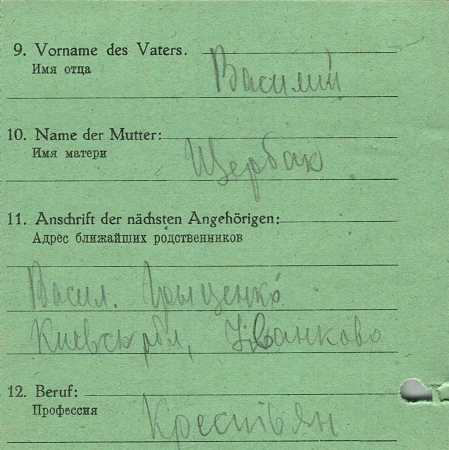 9. Vorname des Vaters.
Имя отца
Василий
10. Name der Mutter:
Имя матери
Щербак
11. Anschrift der nächsten Angehörigen:
Адрес ближайших родственников
Васил. Грыценко
Киевск обл, Иванково
12. Beruf:
Профессия
Крестьян